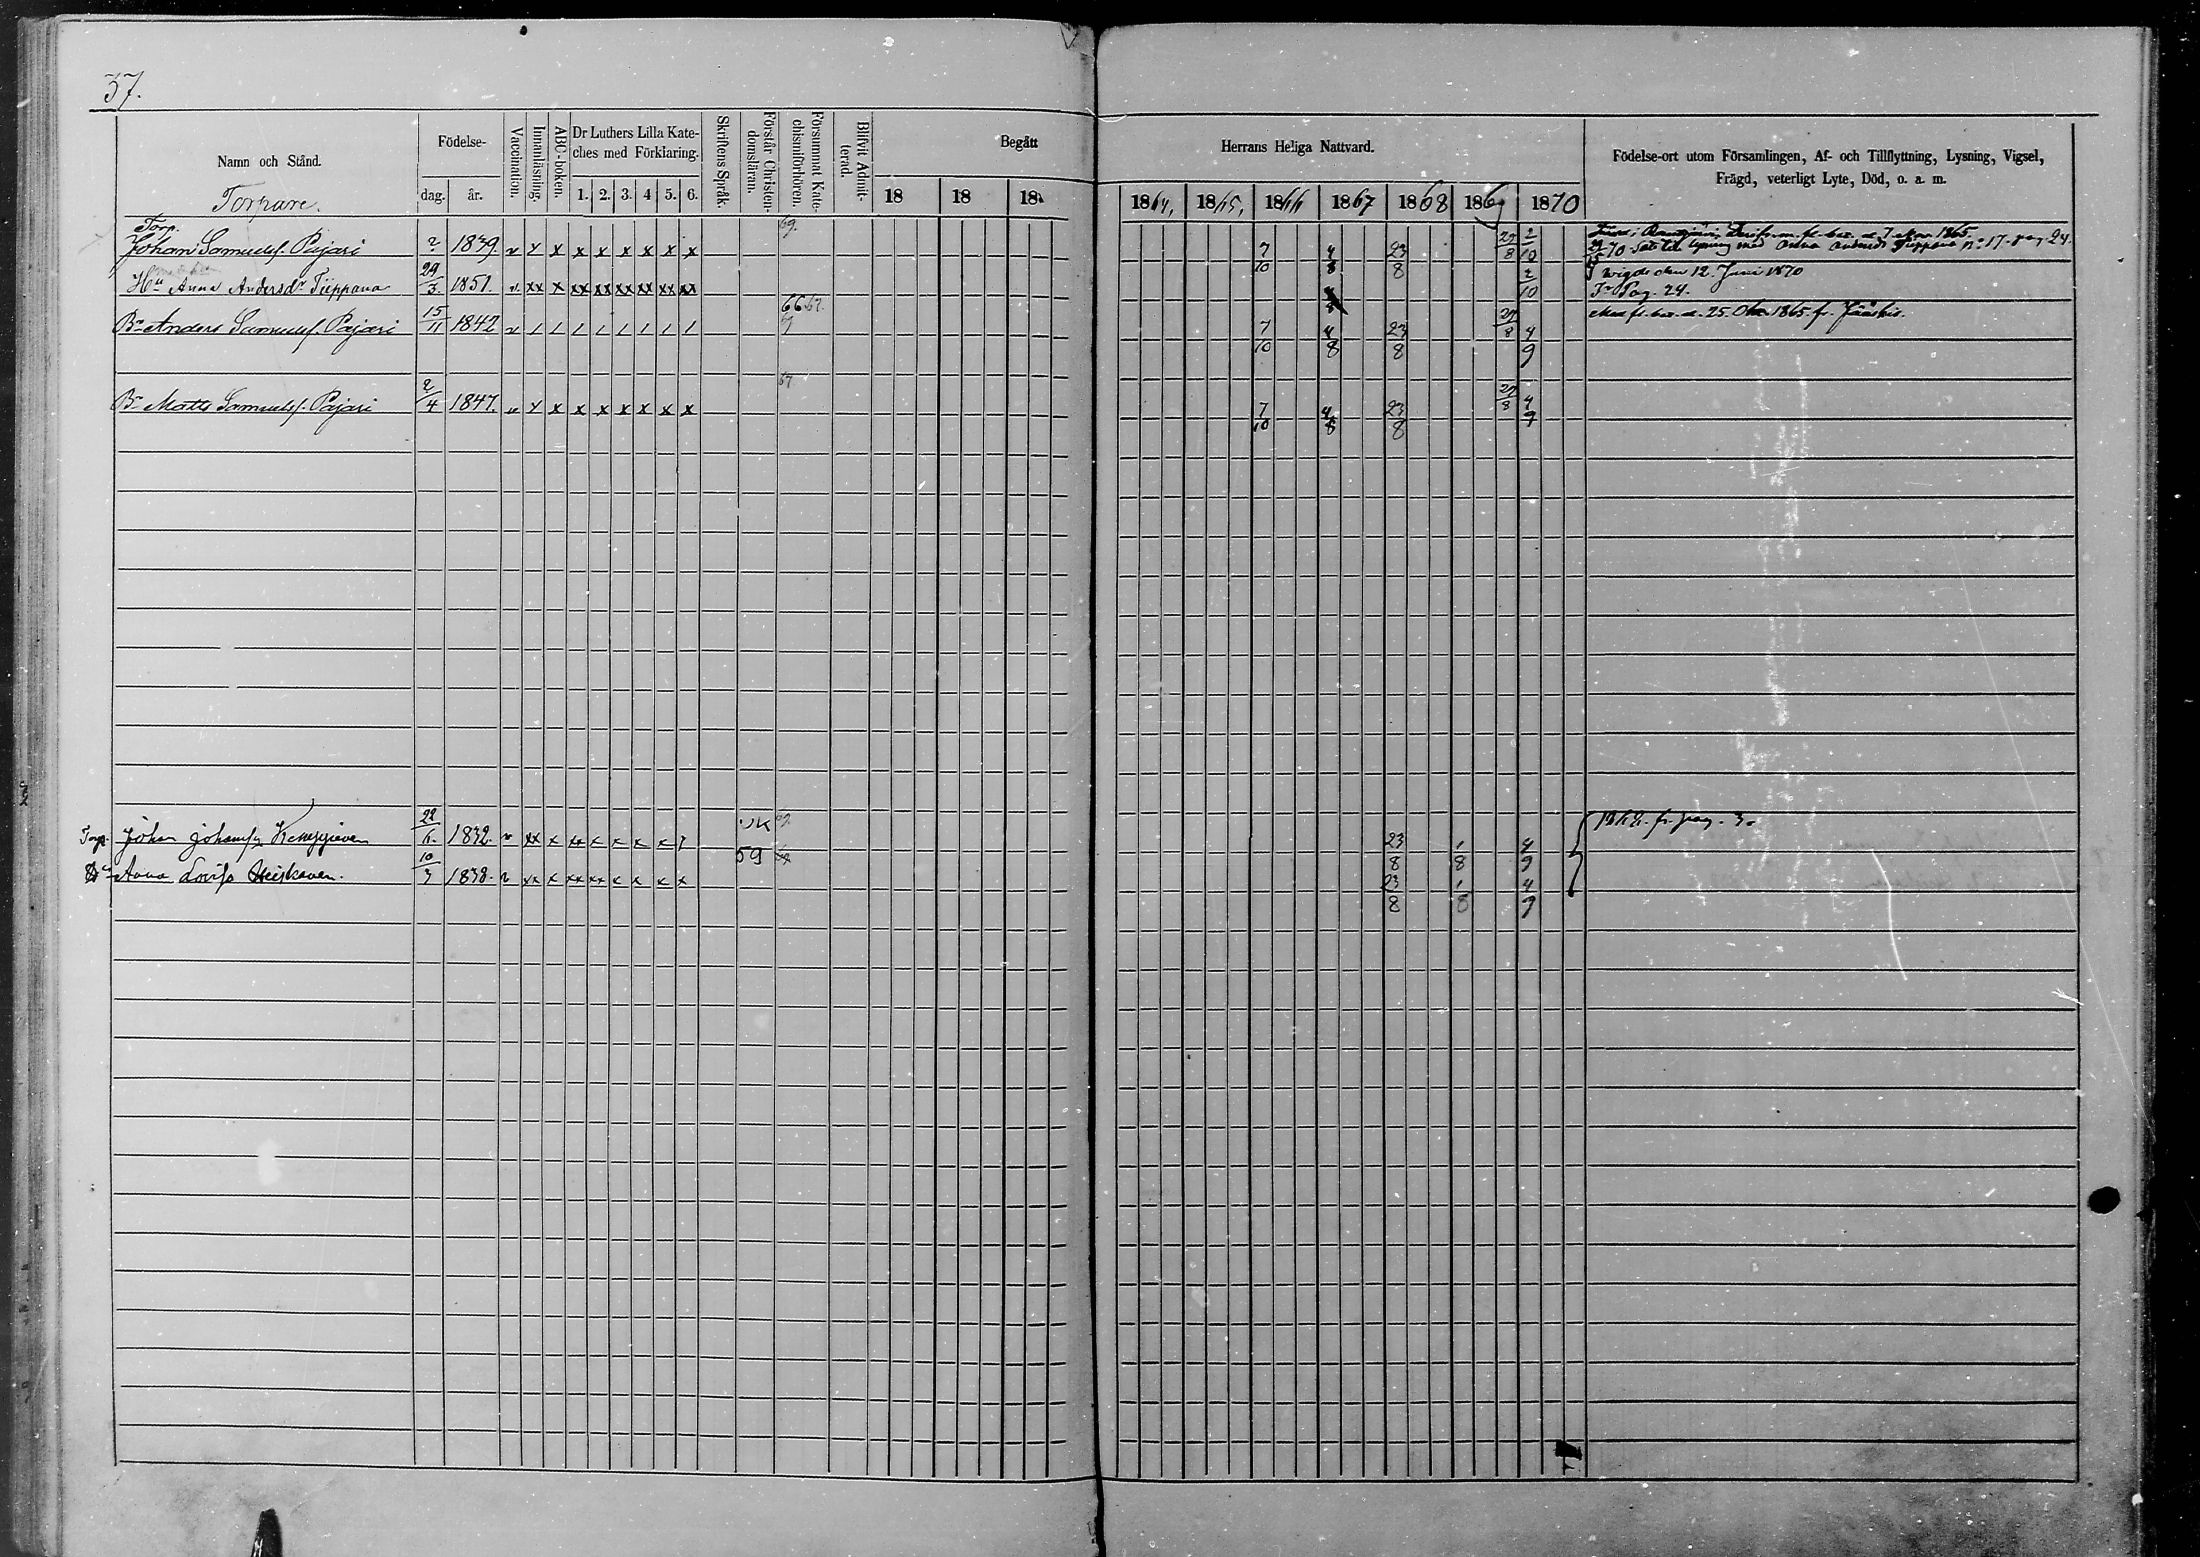 37.
Namn och Stånd.
Födelse-
dag. år.
Vaccination.
Innanläsning.
ABC-boken.
Dr Luthers Lilla Kate-
ches med Förklaring.
1. 2. 3. 4 5. 6.
Skriftens Språk.
Förstår Christen-
domsläran.
Försummat Kate-
chismiförhören.
Blifvit Admit-
terad.
Begått
18 18 18
Herrans Heliga Nattvard.
1864. 1865. 1866 1867 1868 1869 1870
Födelse-ort utom Församlingen, Af- och Tillflyttning, Lysning, Vigsel,
Frägd, veterligt Lyte, Död, o. a. m.
Torpare.
Torp. 69.
Johan Samuelsf. Pajari 2 1839. v x x x x x x x x 7/10 4/8 23/8 29/8 2/10 m. fl. bet. d. 7. Nov. 1865.
70 lysning med Anna Andersdr Tiippana No 17. pag. 24.
Hu Anna Andersdr Tiippana 29/3. 1851. v. xx x xx xx xx xx xx xx 2/10 wigde den 12. Juni 1870
Fr Pag. 24.
Br Anders Samuelsf. Pajari 15/11 1842 v / / / / / / / / 66 67. 7/10 4/8 23/8 29/8 4/9 Med fl. bet. d. 25. 1865 fr. Jääskis.
Br Matts Samuelsf. Pajari 2/4 1847. v x x x x x x x x 67 7/10 4/8 23/8 29/8 4/9
Torp. Johan Johansf. 22/6. 1832. v xx x xx x x x x 23/8 1/8 4/9 1868. fr. pag. 3.
59
Anna Lovisa 10/3 1838. v xx x xx xx x x x x 23/8 1/8 4/9